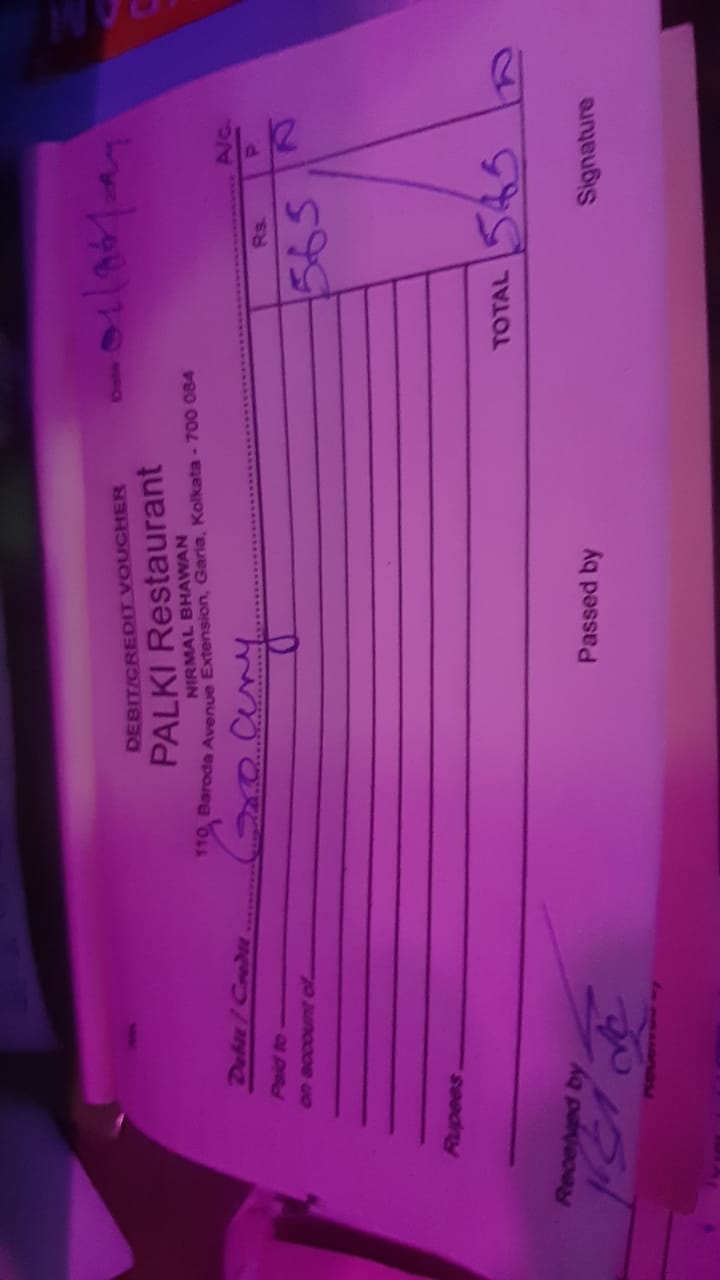 DEBIT/CREDIT VOUCHER
PALKI Restaurant
NIRMAL BHAWAN
110, Baroda Avenue Extension, Garia, Kolkata - 700 084
Date
Debit / Credit Grocery A/c.
Paid to Rs. P
on account of 565
Rupees
TOTAL 565
Received by Passed by Signature